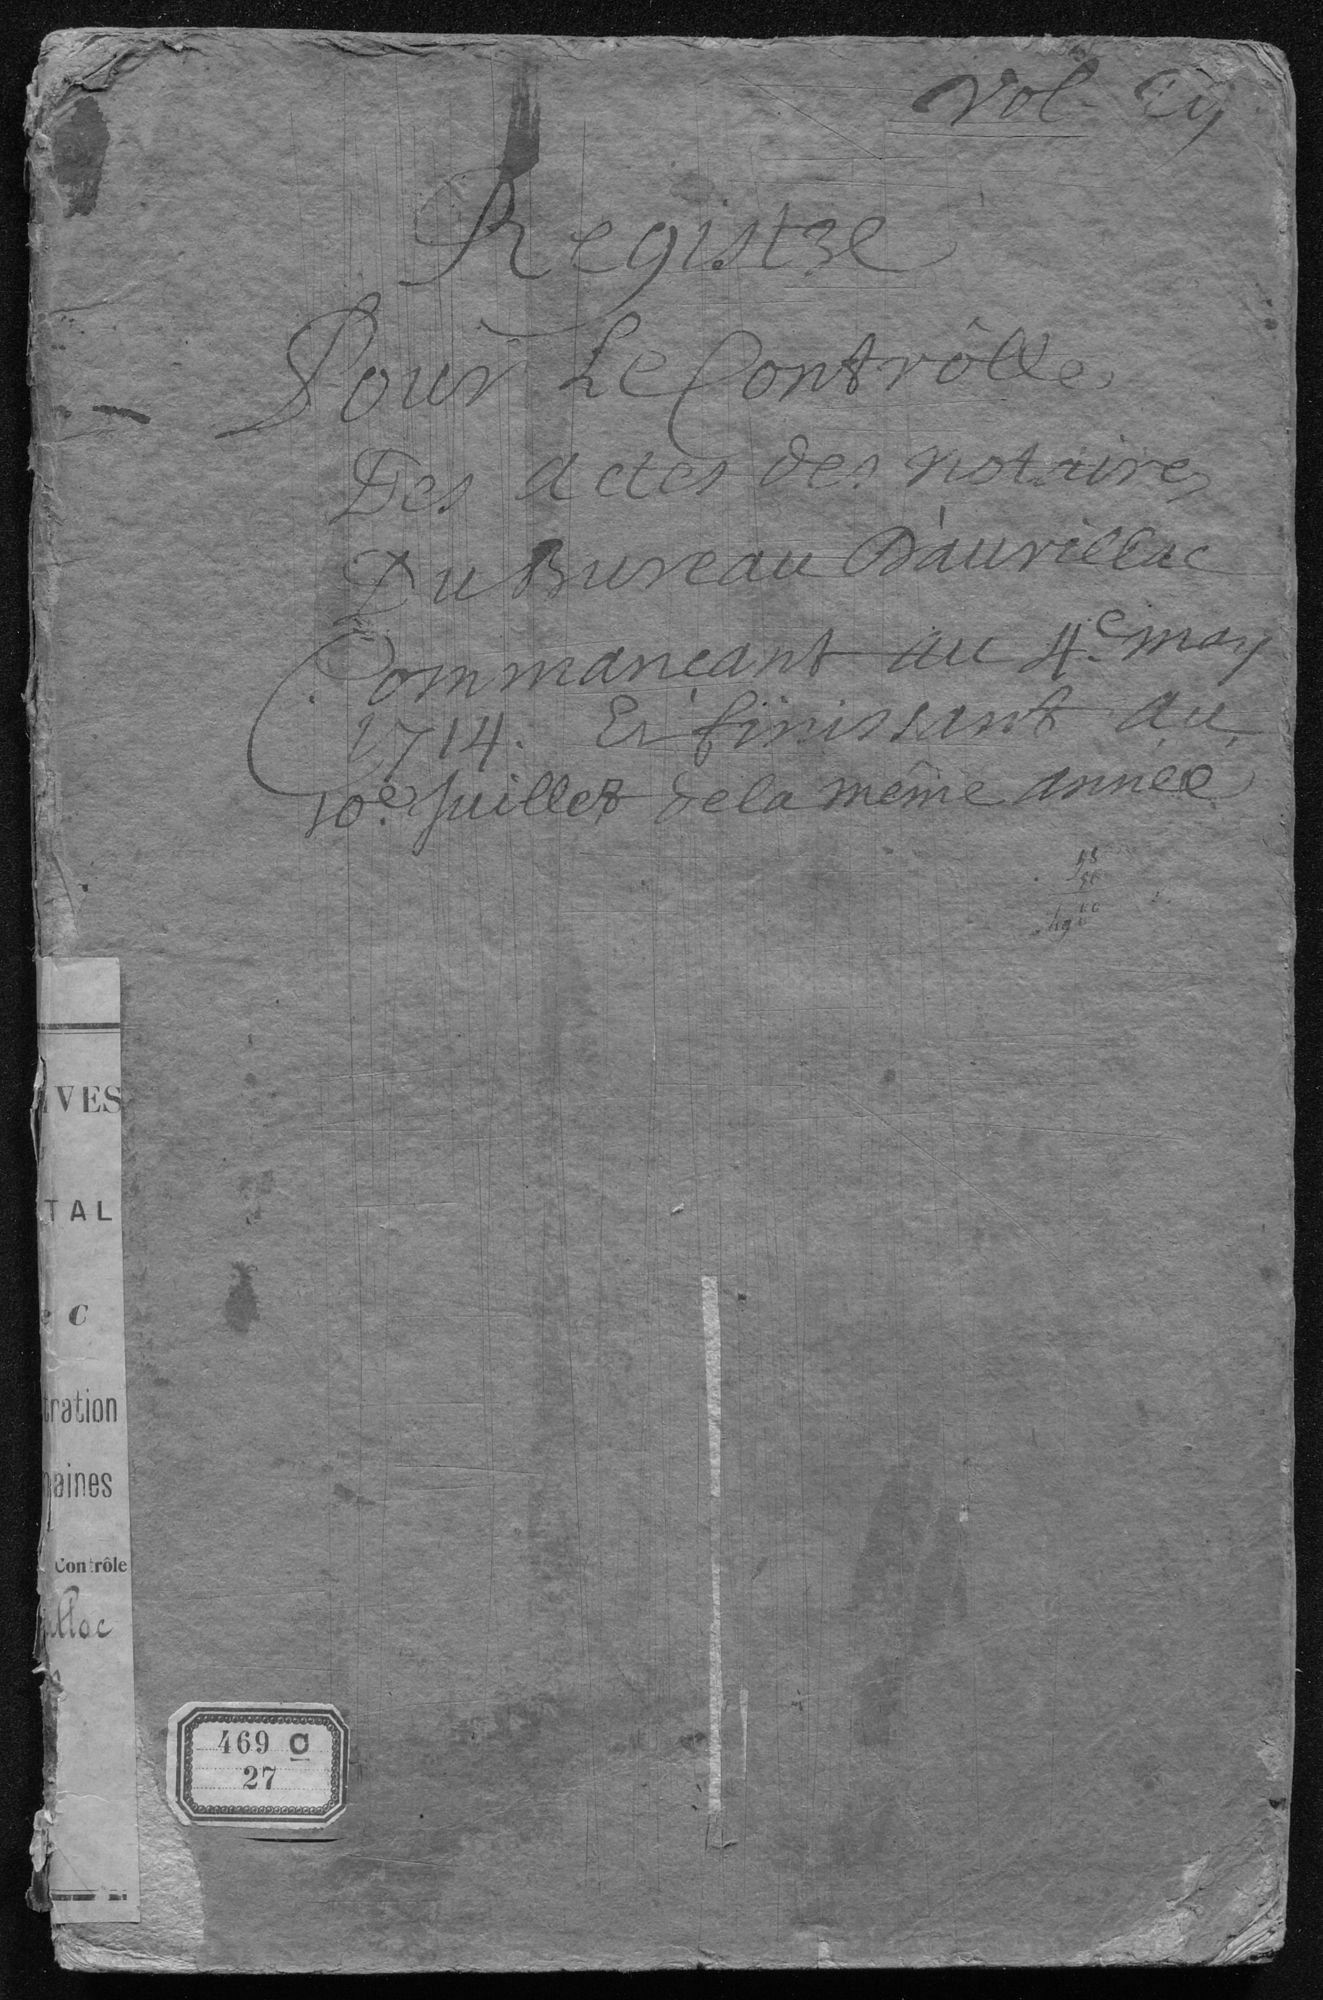 Vol
Registre
Pour Le Contrôlle
Des actes des notaires
Du Bureau D'aurillac
Commançant au 4e may
1714. Et finissant au
10e Juillet de la même année
IVES
TAL
C
tration
aines
Contrôle
illac
469 C
27